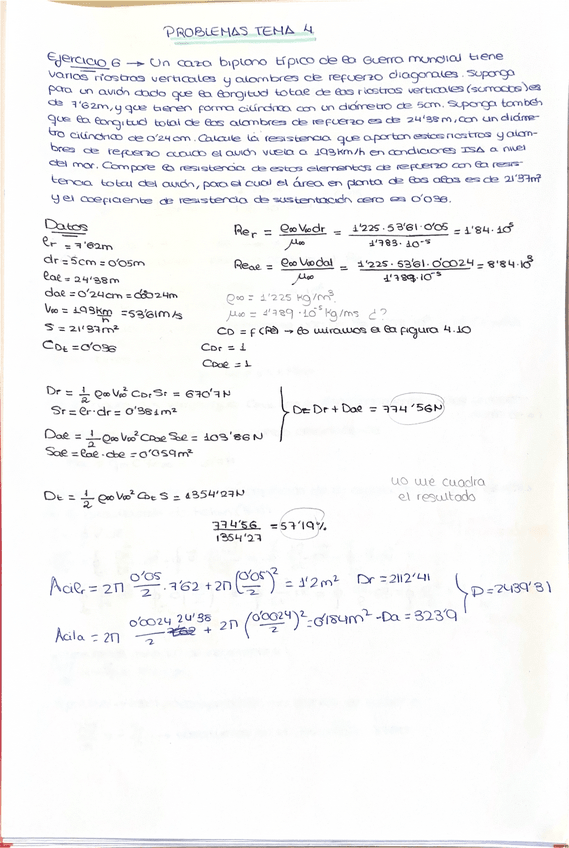 PROBLEMAS TEMA 4
Ejercicio 6 → Un caza biplano típico de la Guerra mundial tiene
varios riostras verticales y alambres de refuerzo diagonales. Suponga
para un avión dado que la longitud total de las riostras verticales (sumados) es
de 7'62m, y que tienen forma cilíndrica con un diámetro de 5cm. Suponga también
que la longitud total de los alambres de refuerzo es de 24'38m, con un diáme-
tro cilíndrico de 0'24cm. Calcule la resistencia que aportan estos riostras y alam-
bres de refuerzo cuando el avión vuela a 193km/h en condiciones ISA a nivel
del mar. Compare la resistencia de estos elementos de refuerzo con la resis-
tencia total del avión, para el cual el área en planta de las alas es de 21'37m²
y el coeficiente de resistencia de sustentación cero es 0'036.
Datos
lr = 7'62m
dr = 5cm = 0'05m
lal = 24'38m
dal = 0'24cm = 0'0024m
V∞ = 193 km/h = 53'61m/s
S = 21'37m²
CDt = 0'036
Rer = ρ∞V∞dr/μ∞ = 1'225·53'61·0'05/1'789·10⁻⁵ = 1'84·10⁵
Real = ρ∞V∞dal/μ∞ = 1'225·53'61·0'0024/1'789·10⁻⁵ = 8'84·10³
ρ∞ = 1'225 kg/m³
μ∞ = 1'789·10⁻⁵ kg/ms ¿?
CD = f(Re) → lo miramos en la figura 4.10
CDr = 1
CDal = 1
Dr = 1/2 ρ∞V∞² CDr Sr = 670'7N
Sr = lr·dr = 0'381m²
Dal = 1/2 ρ∞V∞² CDal Sal = 103'86N
Sal = lal·dal = 0'059m²
D = Dr + Dal = 774'56N
Dt = 1/2 ρ∞V∞² CDt S = 1354'27N
no me cuadra
el resultado
774'56/1354'27 = 57'19%
Acilr = 2π 0'05/2 · 7'62 + 2π(0'05/2)² = 1'2m² Dr = 2112'41
D = 2439'31
Acila = 2π 0'0024/2 24'38 + 2π(0'0024/2)² = 0'184m² - Da = 323'9